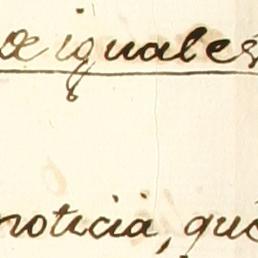 de iguales
noticia, que